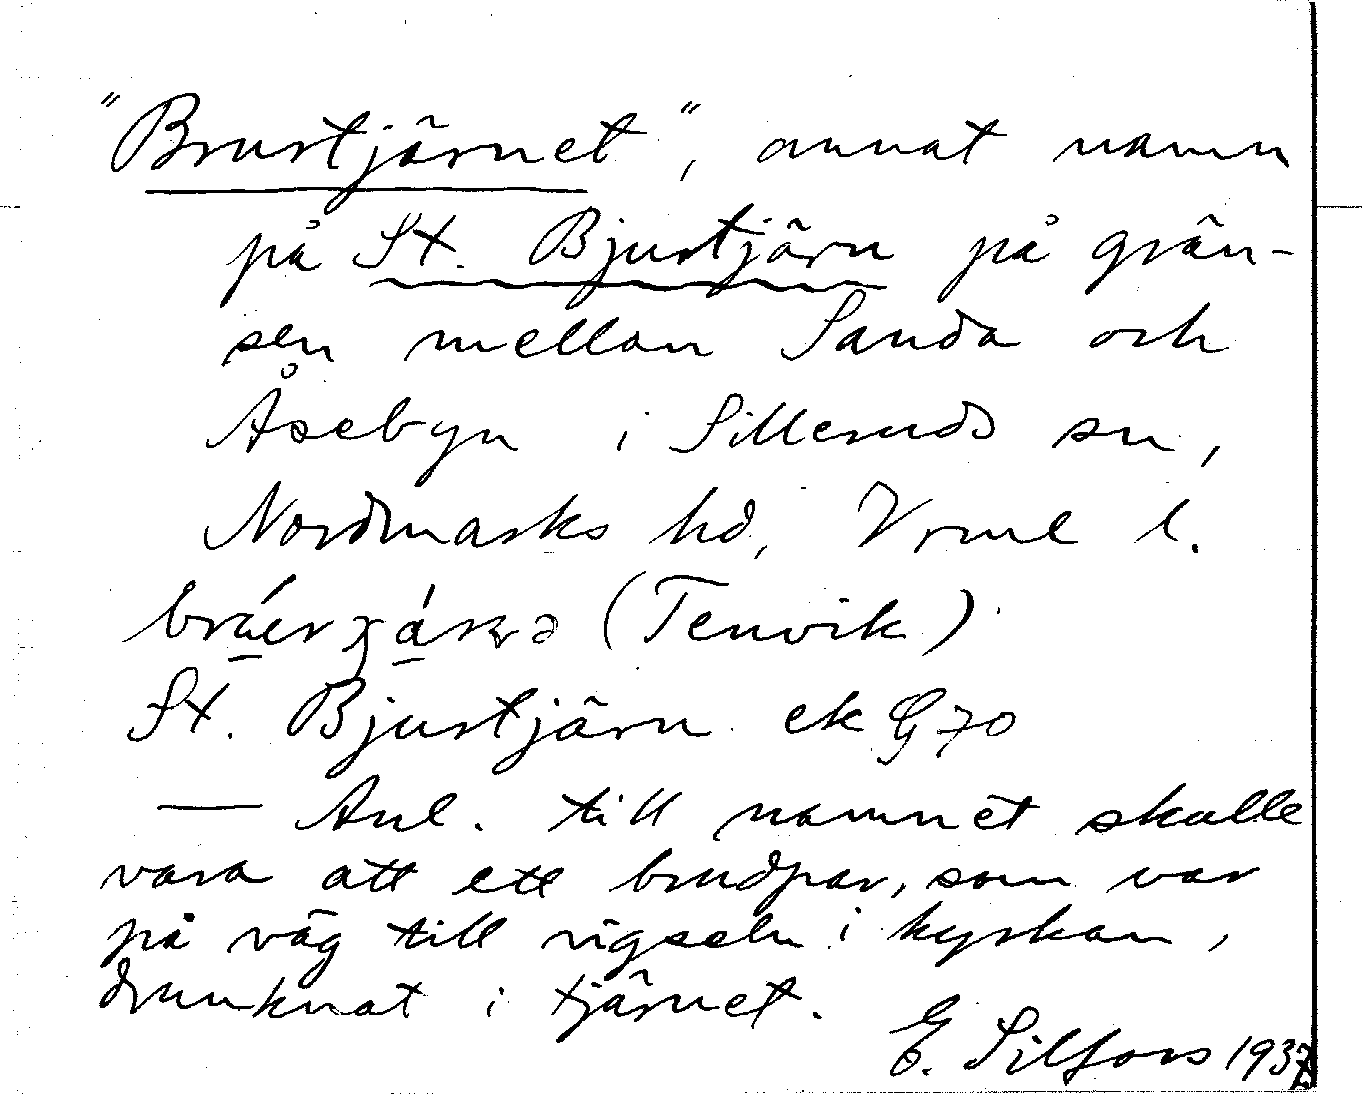 "Brustjärnet", annat namn
på St. Bjustjärn på grän-
sen mellan Sanda och
Åsebyn i Silleruds sn,
Nordmarks hd, Vrml l.
(Tenvik)
St. Bjustjärn ek G 70
— Anl. till namnet skulle
vara att ett brudpar, som var
på väg till vigseln i kyrkan,
drunknat i tjärnet.
E. Silfors 1937